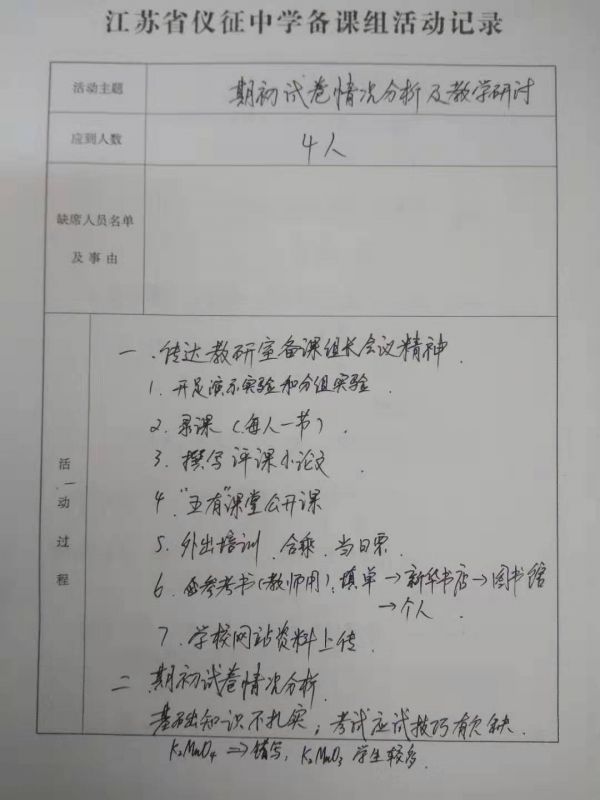 江苏省仪征中学备课组活动记录
活动主题 期初试卷情况分析及教学研讨
应到人数 4人
缺席人员名单
及事由
活动过程
一、传达教研室备课组长会议精神.
1. 开足演示实验和分组实验
2. 录课(每人一节).
3. 撰写评课小论文.
4. "五有"课堂公开课
5. 外出培训 合乘 当日票.
6. 参考书(教师用):填单→新华书店→图书馆
→个人.
7. 学校网站资料上传.
二 期初试卷情况分析.
基础知识不扎实;考试应试技巧有欠缺.
K₂MnO₄ ⇒ 错写, K₂MnO₃ 学生较多.